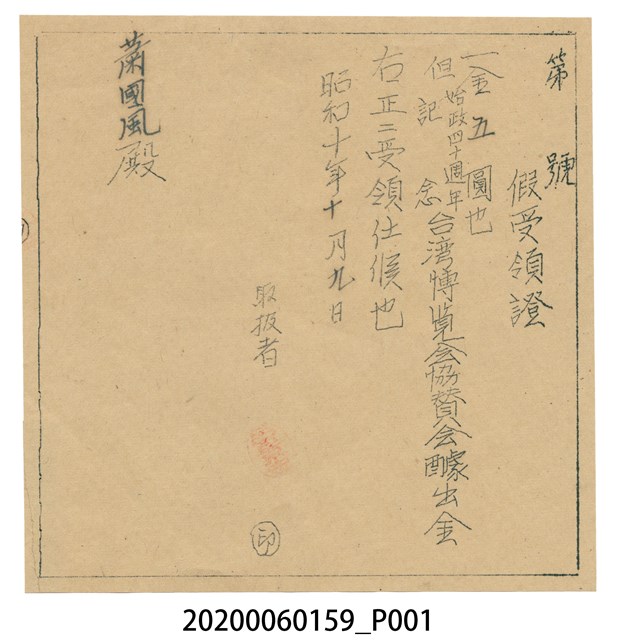 第　號
假受領證
一金五圓也
但始政四十週年記念台湾博覧会協賛会醵出金
右正ニ受領仕候也
昭和十年十月九日
取扱者
印
蕭國風殿
20200060159_P001